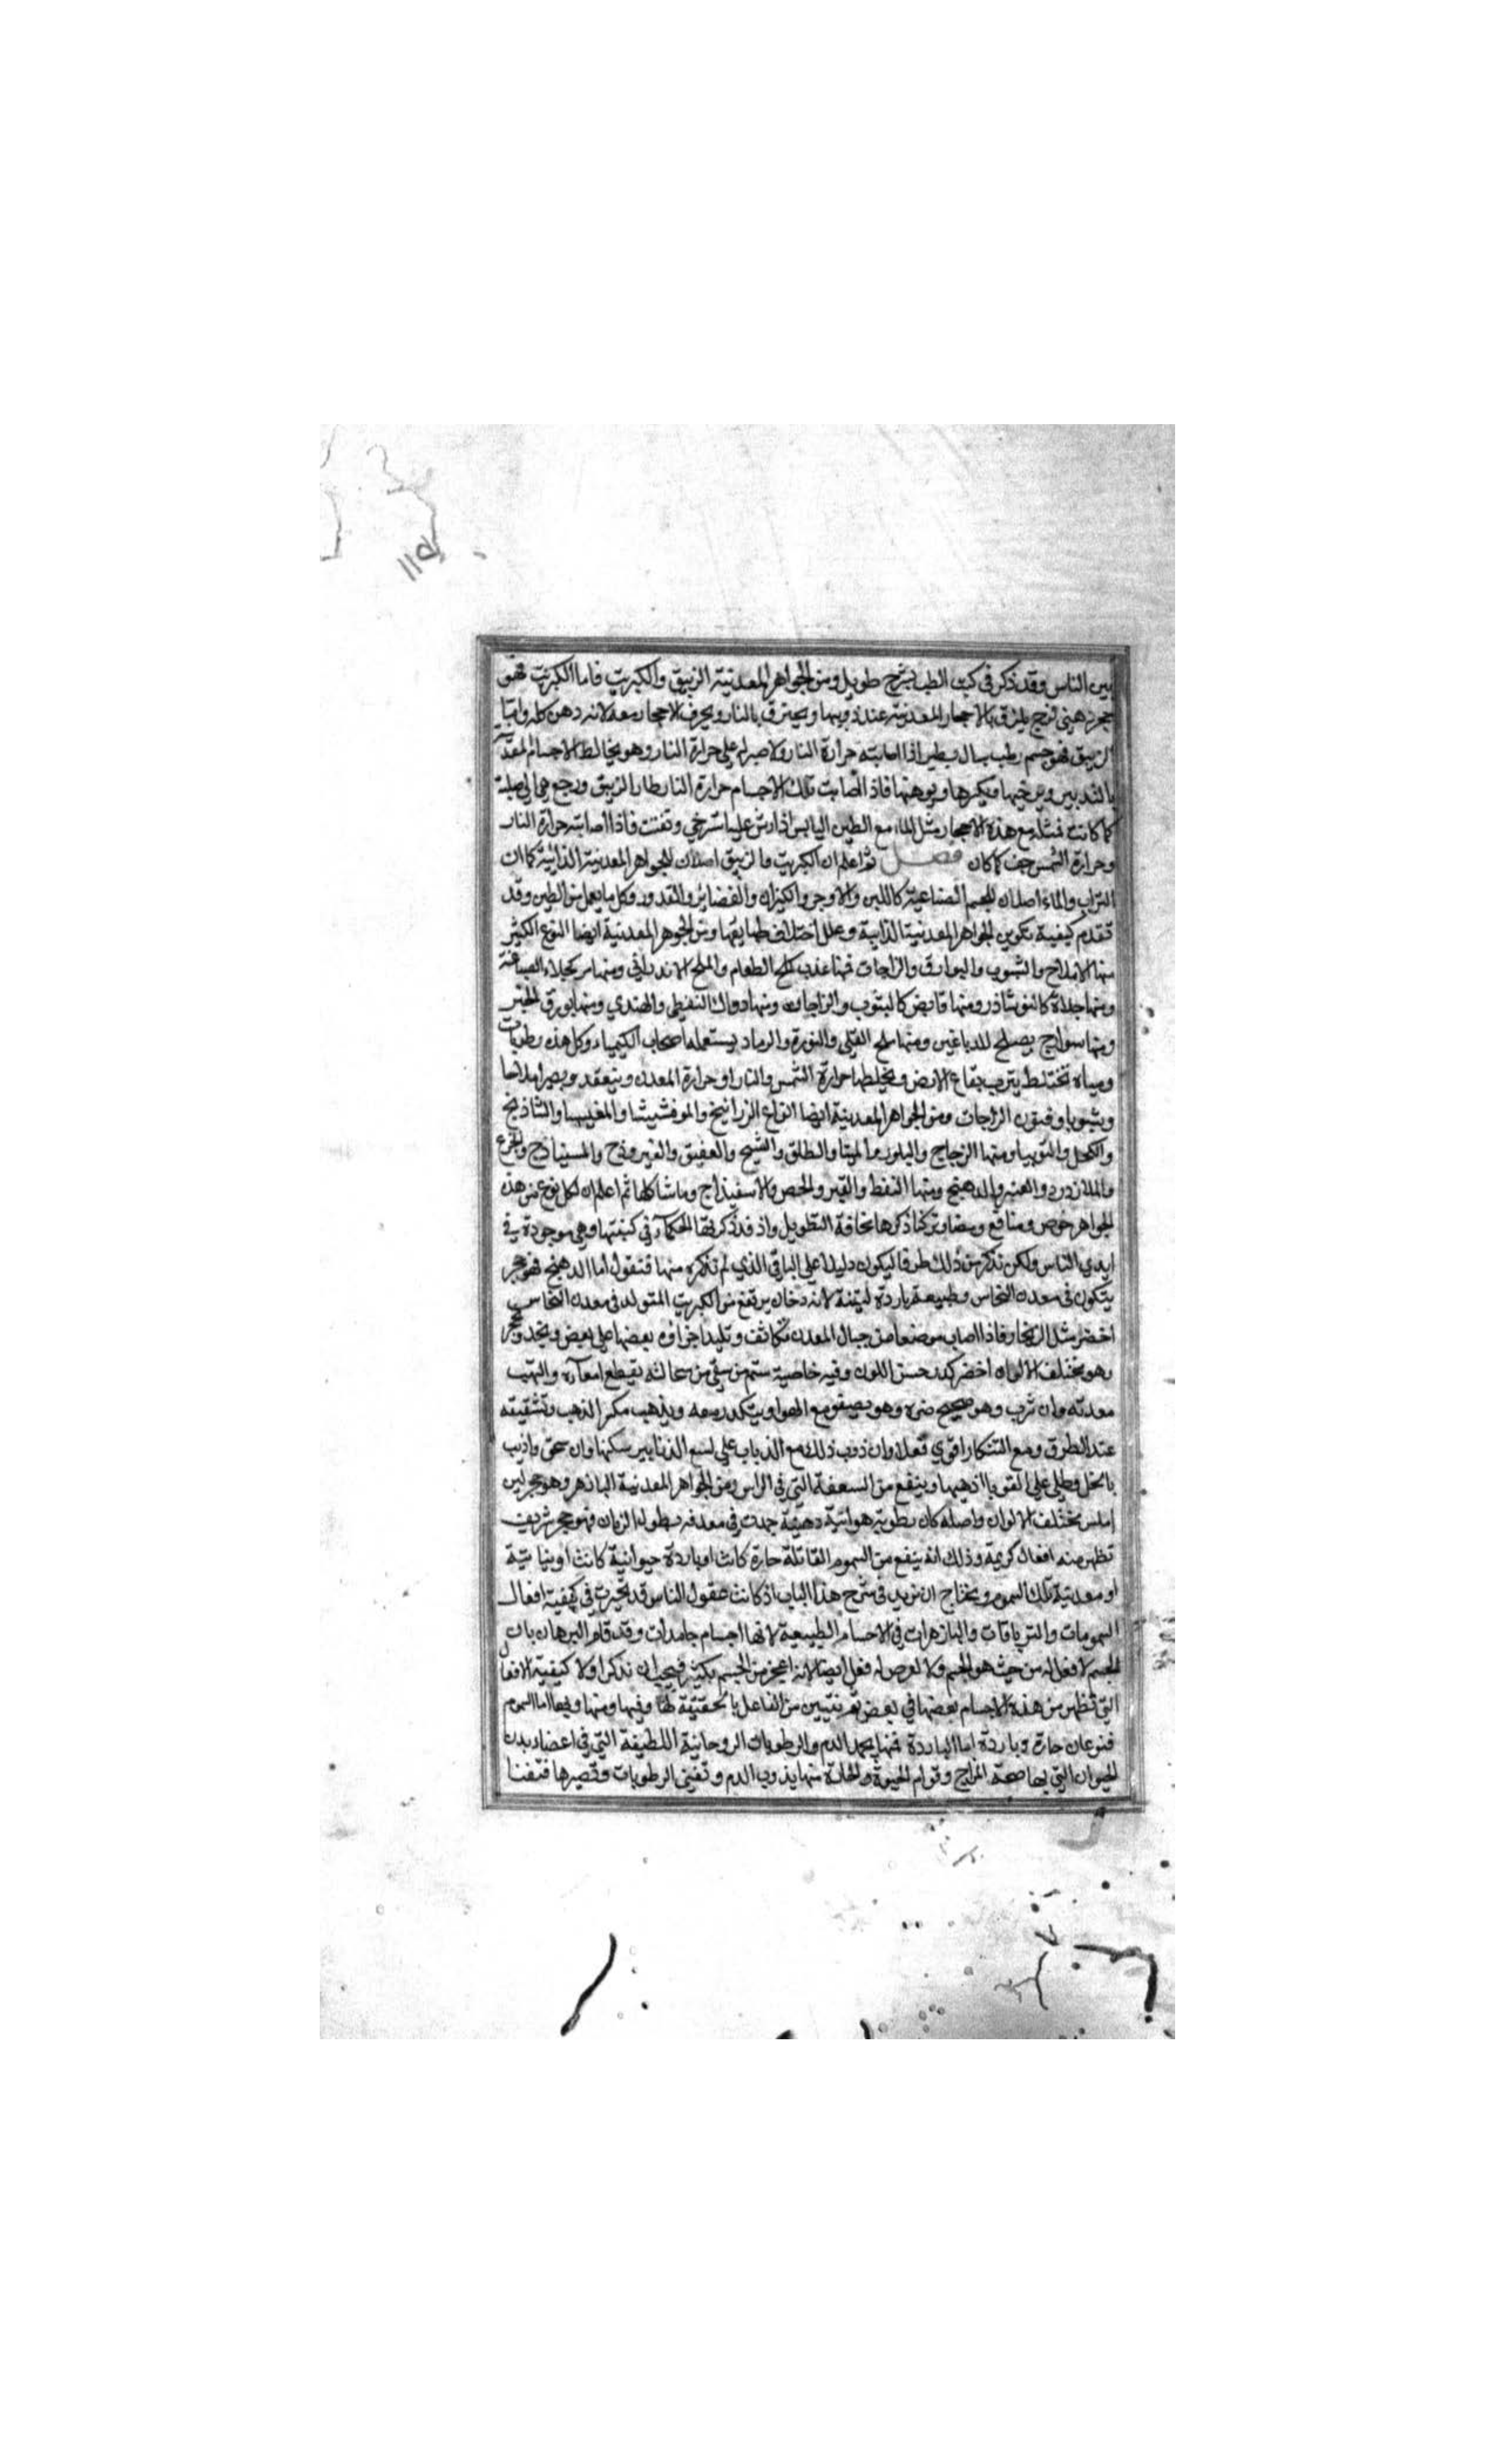 ١١٥
بين الناس وقد ذكر في كتب الطب بشرح طويل ومن الجواهر المعدنية الزيبق والكبريت فاما الكبريت فهو
حجر دهني لزج يلزق بالاحجار المعدنية عند ذوبها ويحترق بالنار ويحرق الاحجار معه لانه دهن كله واما
الزيبق فهو جسم رطب سيال يطير اذا اصابته حرارة النار ولا صبر له على حرارة النار وهو يخالط الاجسام المعدنية
بالتدبير ويرخيها ويكسرها ويوهنها فاذا اصابت تلك الاجسام حرارة النار طار الزيبق ورجع هي الى صلبة
كما كانت فمثله مع هذه الاحجار مثل الماء مع الطين اليابس اذا رش عليه استرخى وتفتت فاذا اصابته حرارة النار
وحرارة الشمس جف كما كان فصل ثم اعلم ان الكبريت والزيبق اصلان للجواهر المعدنية الذائبة كما ان
التراب والماء اصلان للجسم الصناعية كاللبن والاوجر والكيزان والغضائر والقدور وكل ما يعمل من الطين وقد
تقدم كيفية تكوين الجواهر المعدنية الذايبة وعلل اختلاف طبايعها ومن الجوهر المعدنية ايضا النوع الكثير
منها الاملاح والشبوب والبوارق والزاجات فمنها عذب كملح الطعام والملح الاندراني ومنها مر كجلاء الصياغة
ومنها جلاة كالنوشاذر ومنها قابض كالشوب والزاجات ومنها دواك النفطي والهندي ومنها بورق الخبز
ومنها سوايج يصلح للدباغين ومنها ملح القلي والنورة والرماد يستعمله اصحاب الكيمياء وكل هذه رطوبات
ومياه تختلط بترب بقاع الارض ويخلطها حرارة الشمس والنار او حرارة المعدن وينعقد ويصير املاحا
وشبوبا وفنون الزاجات ومن الجواهر المعدنية ايضا انواع الزرانيخ والموقشيشا والمغيسا والشاذنج
والكحل والتوتيا ومنها الزجاج والبلور والميتا والطلق والشيح والعقيق والفيروزج والمسنباذج والجزع
والملازورد والعنبر والدهنج ومنها النفط والقير والجص والاسفيذاج وما شاكلها ثم اعلم ان لكل نوع من هذه
الجواهر خوص ومنافع ومضار وتركنا ذكرها مخافة التطويل واذ قد ذكرتها الحكماء في كتبها وهي موجودة في
ايدي الناس ولكن نذكر من ذلك طرفا ليكون دليلا على الباقي الذي لم نذكره منها فنقول اما الدهنج فهو حجر
يتكون في معدن النحاس وطبيعته باردة لينة لانه دخان يرتفع من الكبريت المتولد في معدن النحاس
اخضر مثل الزنجار فاذا اصاب موضعا من جبال المعدن تكاثف وتلبد اجزاؤه بعضها على بعض ويتجد وتحجر
وهو مختلف الالوان اخضر كدر حسن اللون وفيه خاصية ستم من سقي من سحالته يقطع امعآره والتهب
معدته وان شرب وهو صحيح ضره وهو يصفو مع الهوا ويتكدر معه ويذهب مكر الذهب وتشقيقه
عند الطرق ومع التنكار اقوي فعلا وان ذوب ذلك مع الذباب على لسع الذنابير سكنها وان سحق واذيب
بالخل وطلي على القوبا اذهبها وينفع من السعفة التي في الراس ومن الجواهر المعدنية البازهر وهو حجر لين
املس مختلف الالوان واصله كان رطوبة هوائية دهنية جمدت في معدنه بطول الزمان فهو حجر شريف
تظهر منه افعال كريمة وذلك انه ينفع من السموم القاتلة حارة كانت او باردة حيوانية كانت او نباتية
او معدنية تلك السموم ويحتاج ان نريد في شرح هذا الباب اذ كانت عقول الناس قد تحيرت في كيفية افعال
السمومات والترياقات والبازهرات في الاجسام الطبيعية لانها اجسام جامدات وقد قام البرهان بان
الجسم لا فعال له من حيث هو الجسم ولا لعرض له فعل ايضا لانه اعجز من الجسم بكثير فيجب ان نذكر اولا كيفية الافعال
التي تظهر من هذه الاجسام بعضها في بعض ثم نتبين من الفاعل بالحقيقة لها وفيها ومنها وبها اما السموم
فنوعان حارة وباردة اما الباردة فمنها يجمد الدم والرطوبات الروحانية اللطيفة التي في اعضاء بدن
الحيوان التي بها صحة المزاج وقوام الحيوة والحادة منها يذوب الدم وتفنى الرطوبات وتصيرها فتفنا